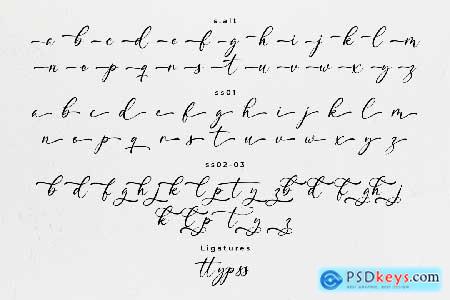 s.alt
a b c d e f g h i j k l m
n o p q r s t u v w x y z
ss01
a b c d e f g h i j k l m
n o p q r s t u v w x y z
ss02-03
b d f g h j k l p t y z b d f g h j
k l p t y z
Ligatures
tt yp ss
PSDkeys.com